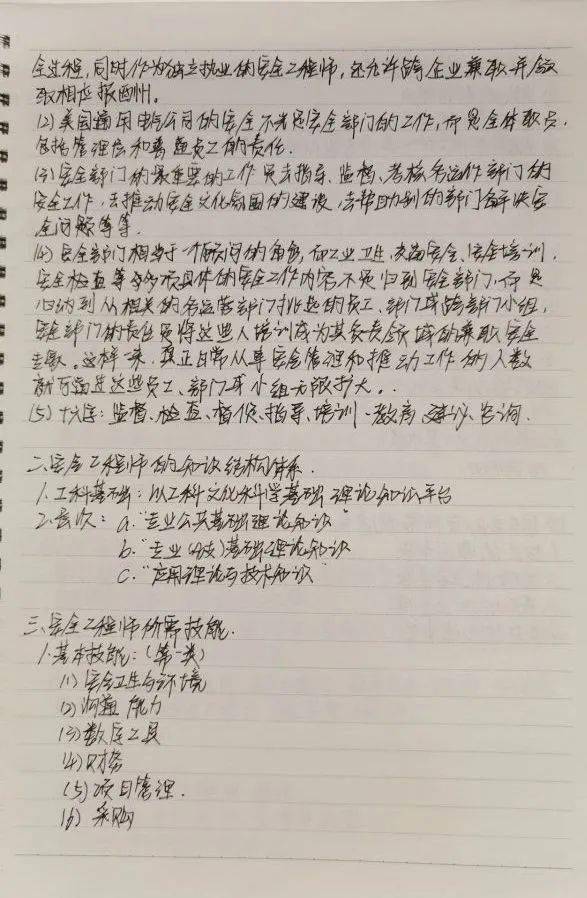 全过程,同时作为独立执业的安全工程师,还允许跨企业兼职并领
取相应报酬州。
(2)美国通用电气公司的安全不光是安全部门的工作,而是全体职员,
包括管理层和普通员工的责任。
(3)安全部门的最重要的工作是去指导、监督、考核各运作部门的
安全工作,去推动安全文化氛围的建设,去帮助别的部门解决安
全问题等等.
(4)安全部门相当于一个顾问的角色,而工业卫生、安全、安全培训、
安全检查等多项具体的安全工作内容不是归到安全部门,而是
归纳到从相关的各运营部门挑选的员工、部门或跨部门小组,
安全部门的责任是将这些人培训成为其负责领域的兼职安全
专家。这样一来,真正日常从事安全管理和推动工作的人数
就可通过这些员工、部门或小组无限扩大。.
(5)十六字:监督、检查、督促、指导、培训、教育、建议、咨询.
二、安全工程师的知识结构体系.
1.工科基础:以工科文化科学基础理论知识平台
2.层次: a."专业公共基础理论知识"
b."专业(技)基础理论知识
c."应用理论与技术知识"
三、安全工程师所需技能.
1.基本技能:(第一类)
(1)安全卫生与环境
(2)沟通能力
(3)数字工具
(4)财务
(5)项目管理.
(6)采购